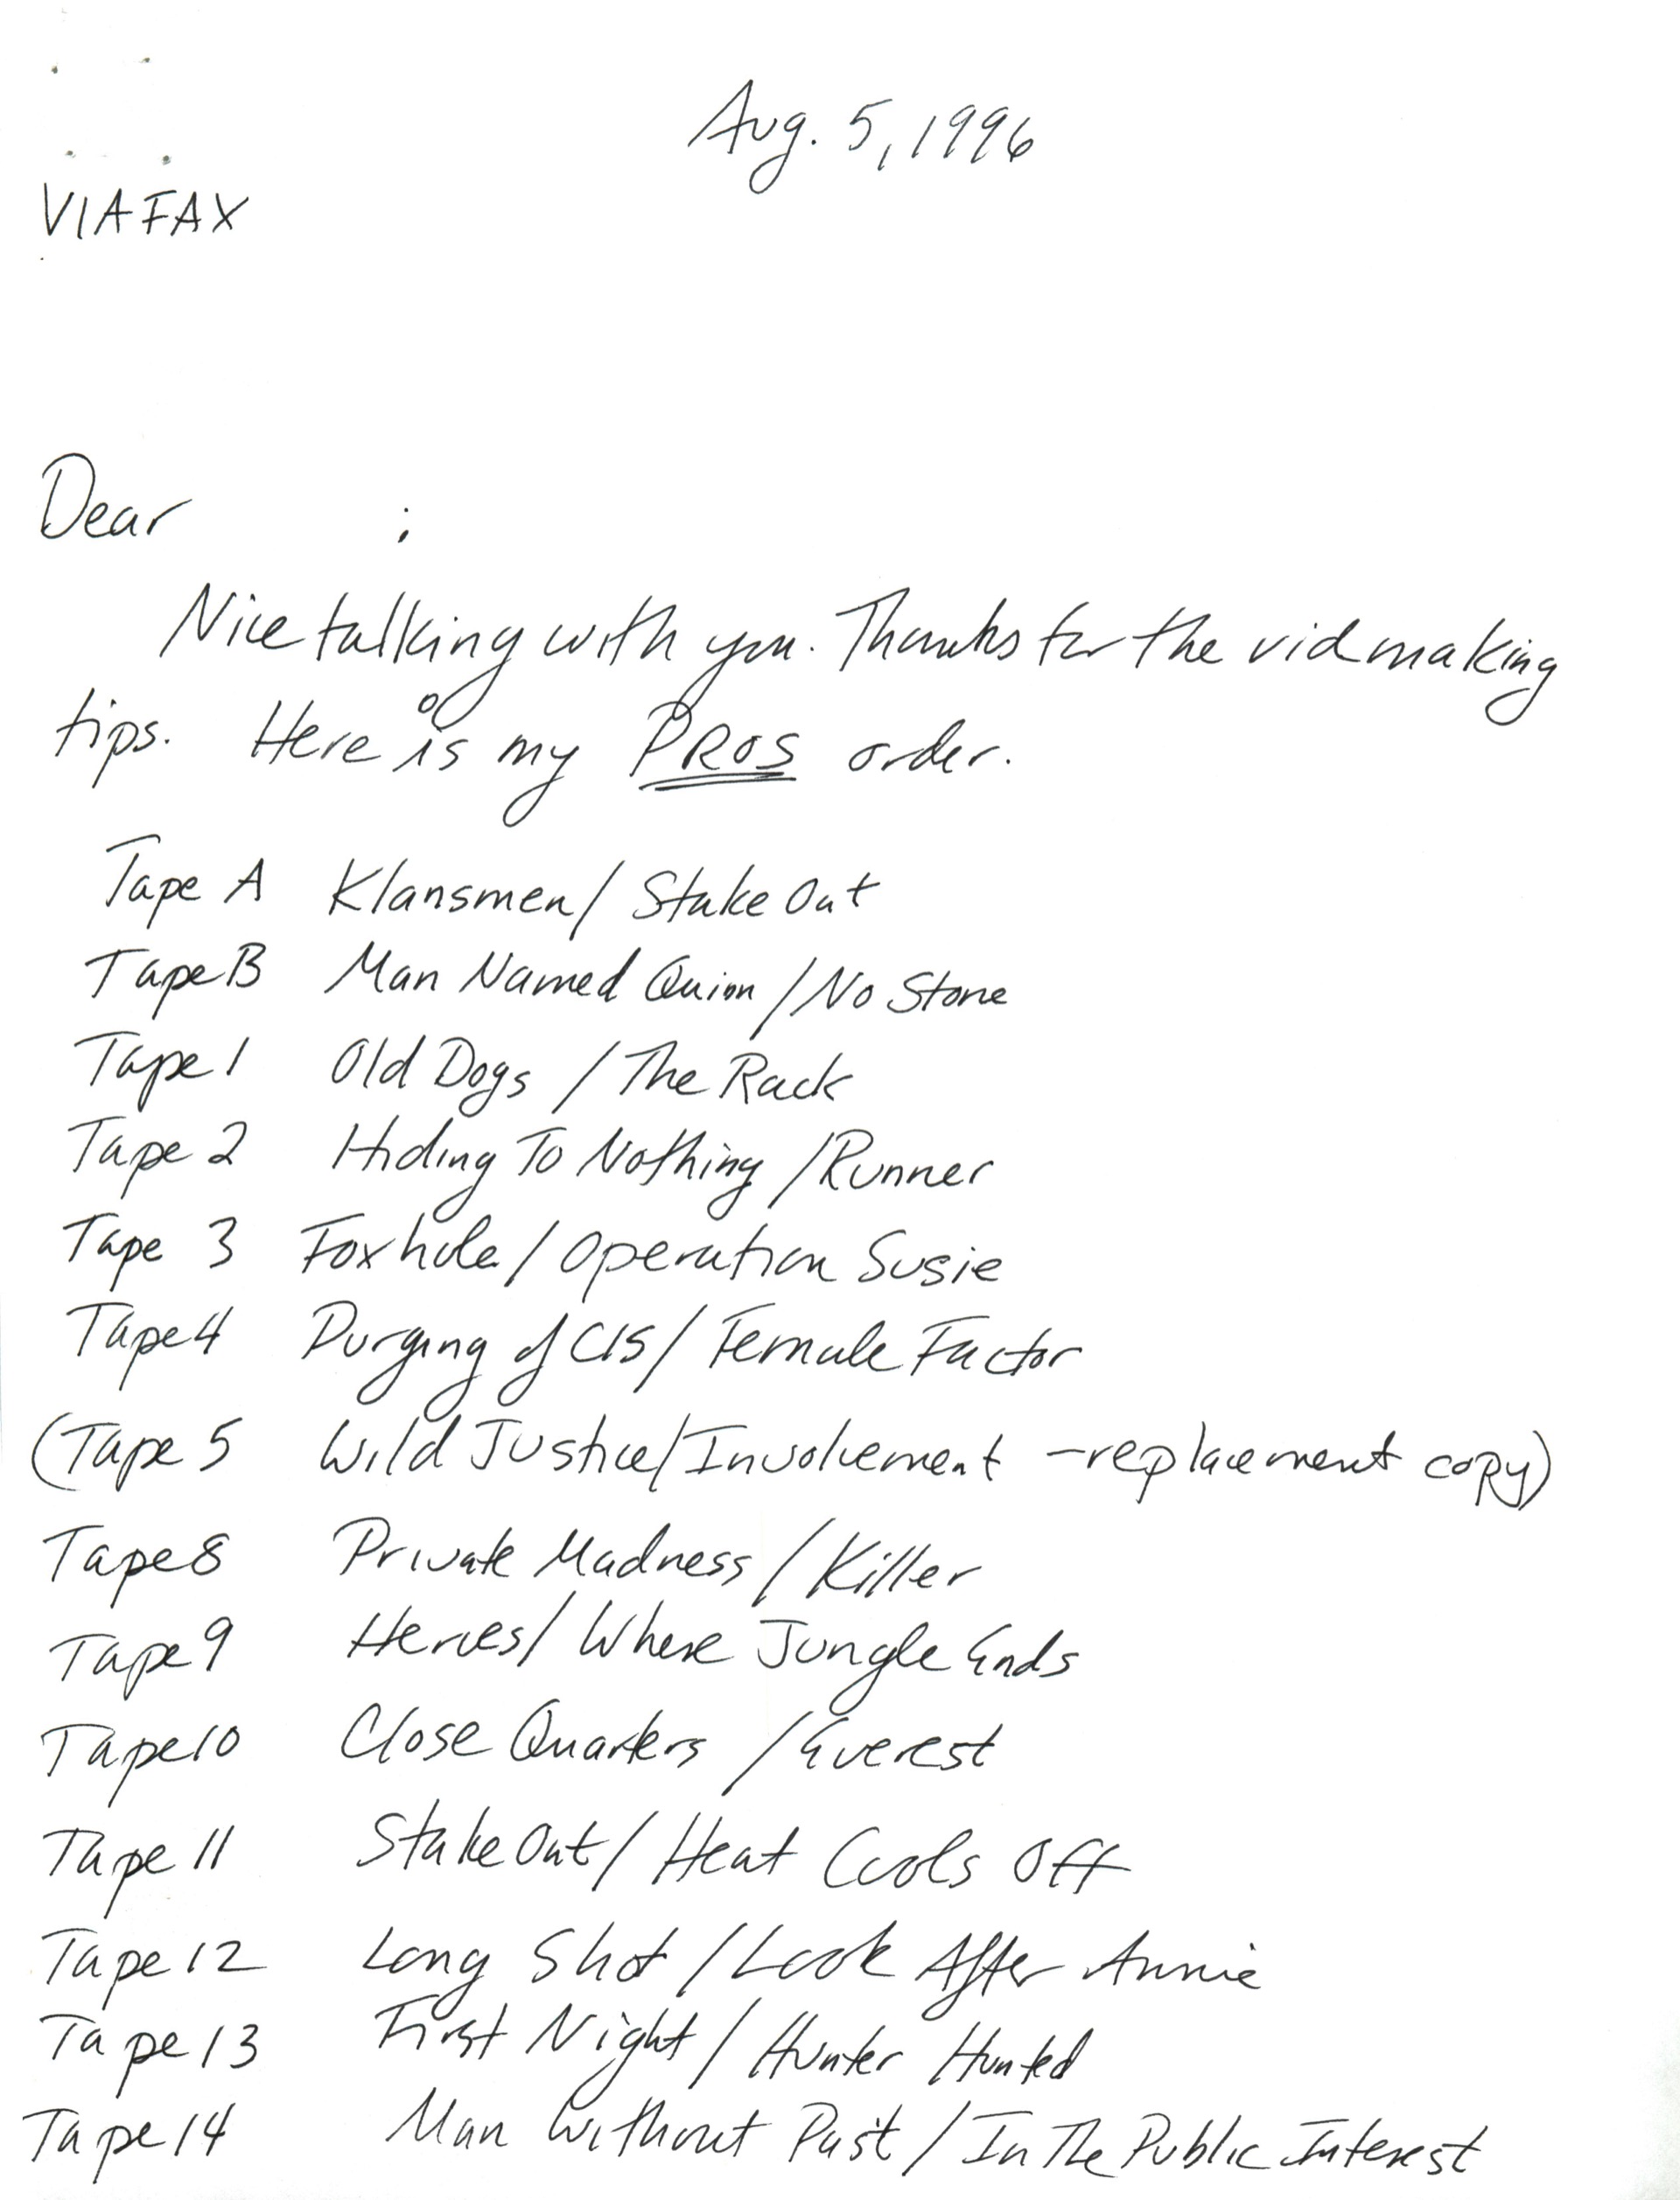 Aug. 5, 1996
VIA FAX
Dear :
Nice talking with you. Thanks for the vidmaking
tips. Here is my PROS order.
Tape A Klansmen / Stake Out
Tape B Man Named Quinn / No Stone
Tape 1 Old Dogs / The Rack
Tape 2 Hiding To Nothing / Runner
Tape 3 Foxhole / Operation Susie
Tape 4 Purging of CI5 / Female Factor
(Tape 5 Wild Justice / Involvement - replacement copy)
Tape 8 Private Madness / Killer
Tape 9 Heroes / Where Jungle Ends
Tape 10 Close Quarters / Everest
Tape 11 Stake Out / Heat Cools Off
Tape 12 Long Shot / Look After Annie
Tape 13 First Night / Hunter Hunted
Tape 14 Man Without Past / In The Public Interest